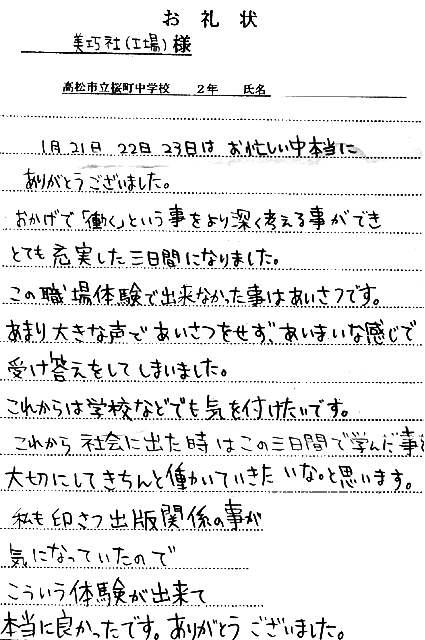 お礼状
美巧社(工場)様
高松市立桜町中学校 2年 氏名
1月21日 22日 23日は お忙しい中本当に
ありがとうございました。
おかげで「働く」という事をより深く考える事ができ
とても充実した三日間になりました。
この職場体験で出来なかった事はあいさつです。
あまり大きな声であいさつをせず、あいまいな感じで
受け答えをしてしまいました。
これからは学校などでも気を付けたいです。
これから社会に出た時はこの三日間で学んだ事を
大切にしてきちんと働いていきたいな。と思います。
私も印さつ出版関係の事が
気になっていたので
こういう体験が出来て
本当に良かったです。ありがとうございました。